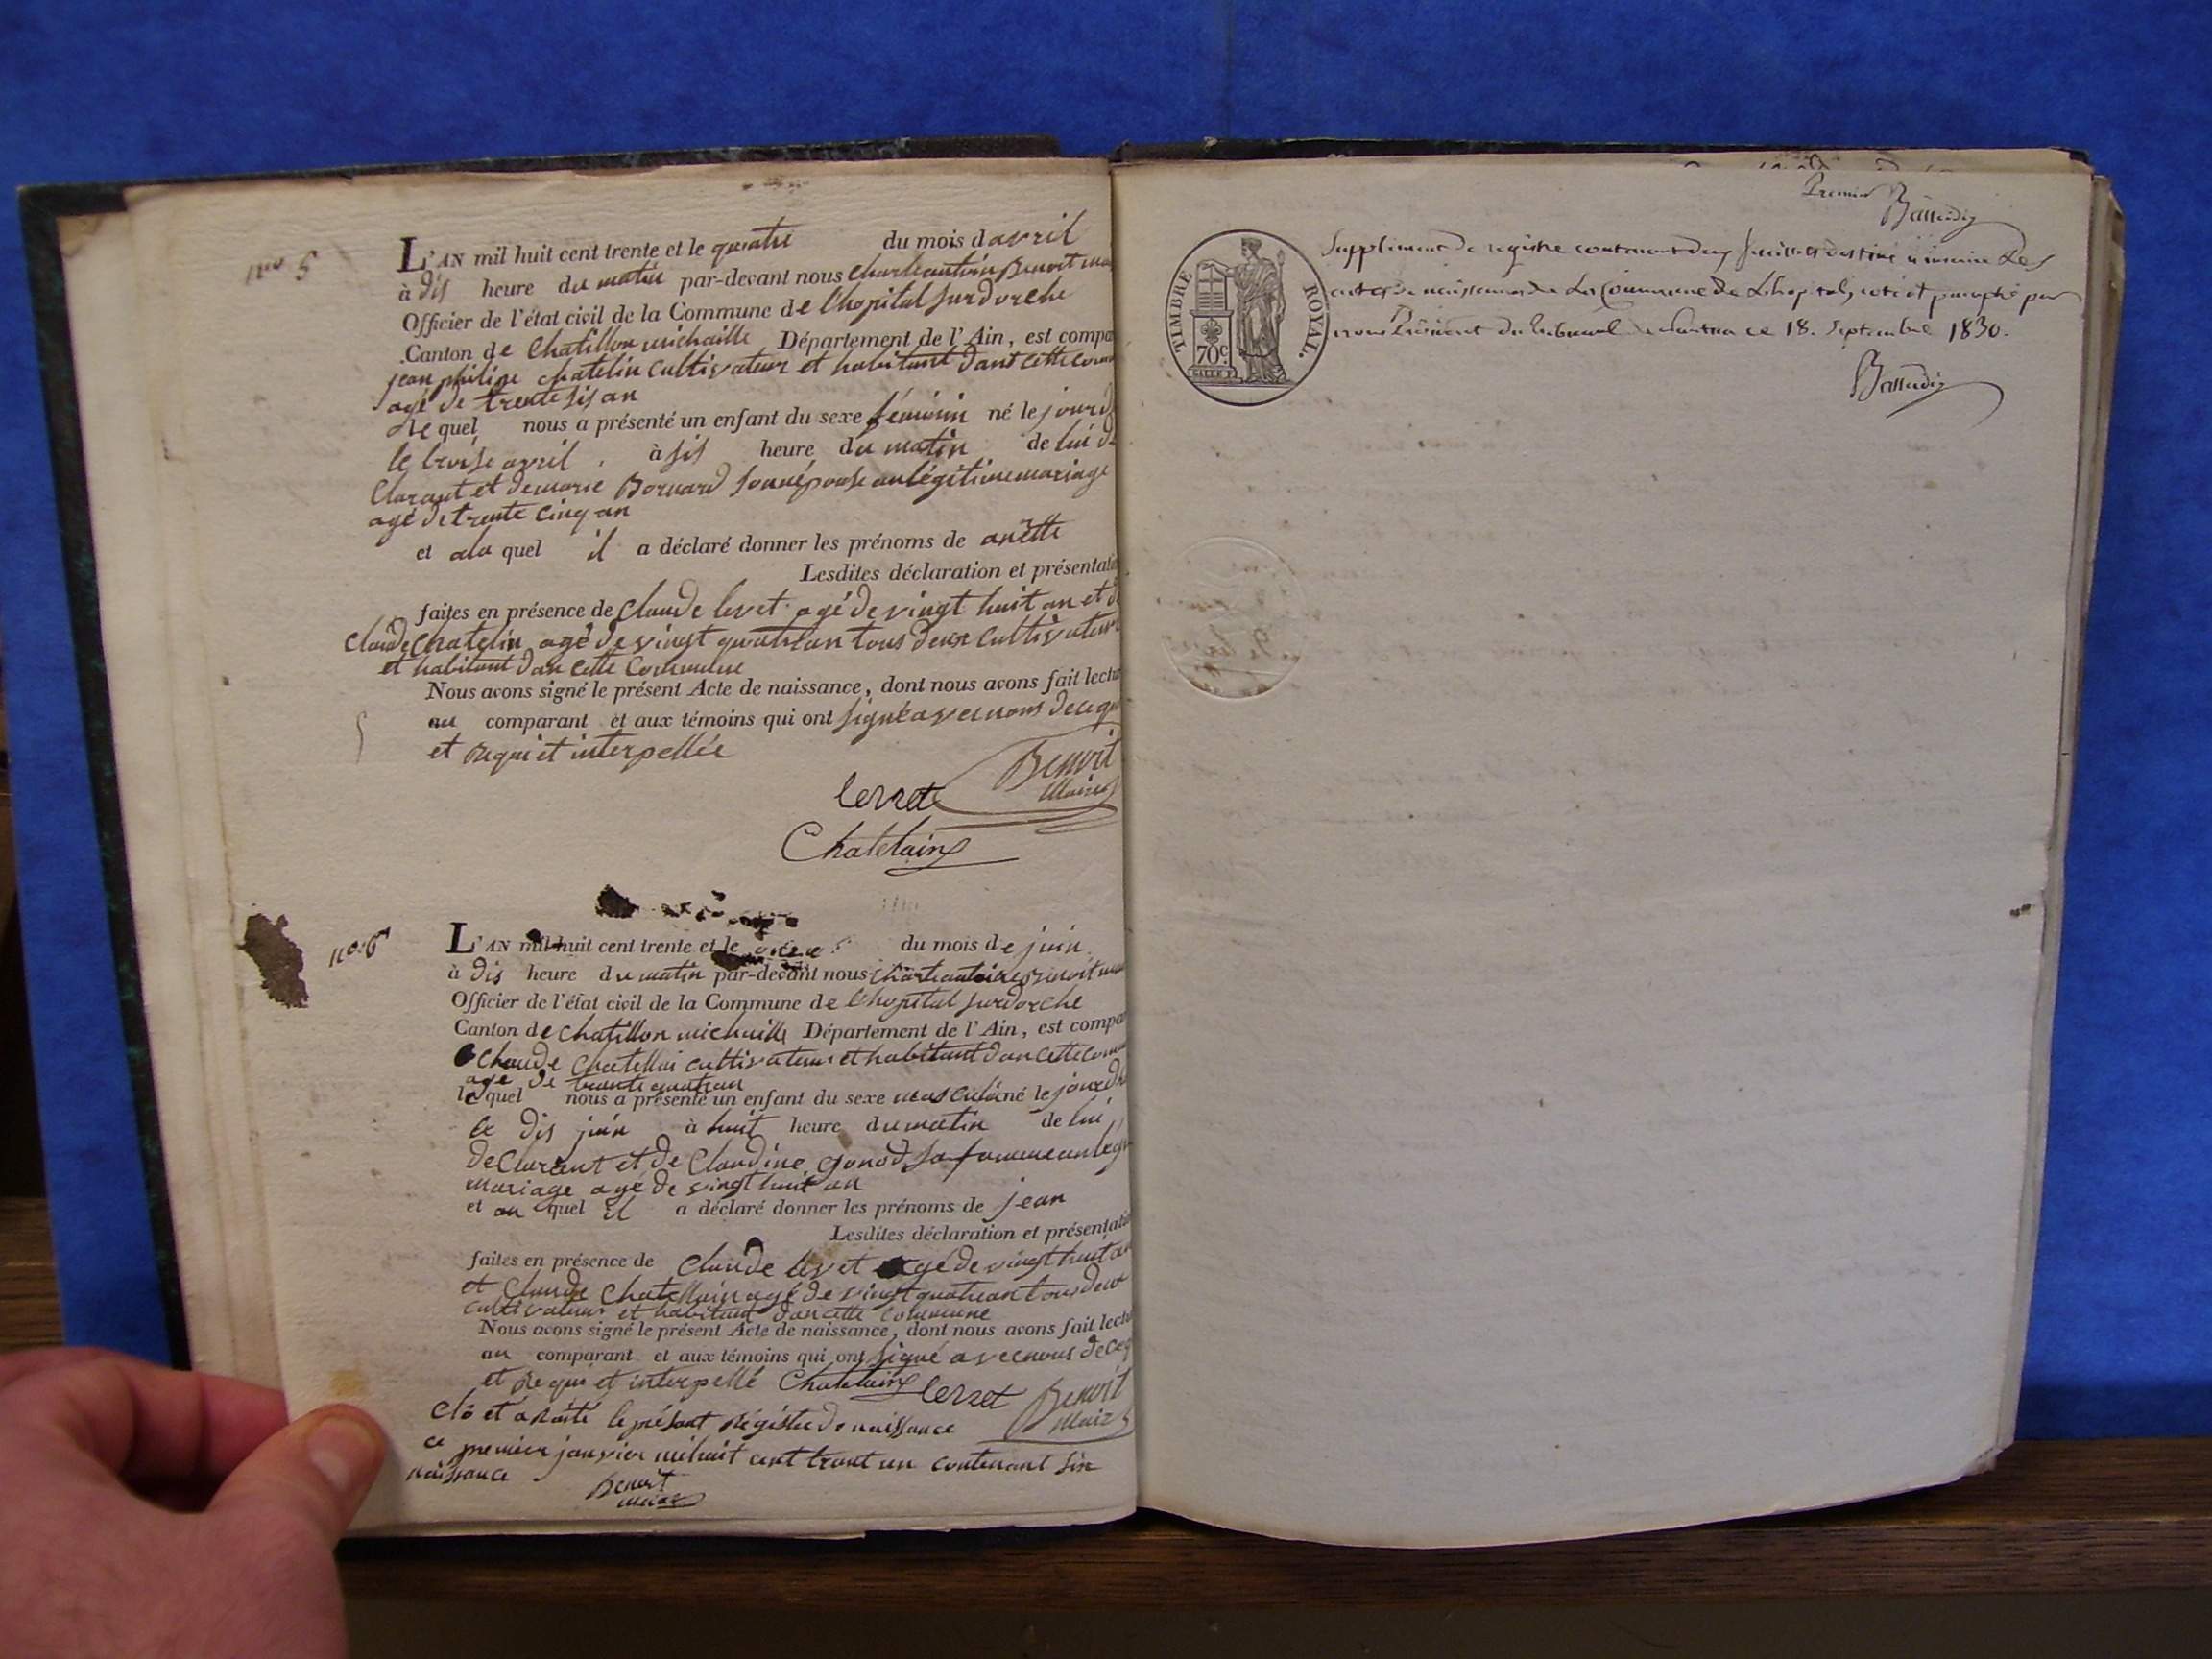 nro 5
L'AN mil huit cent trente et le quatre du mois d avril
à dis heure du matin par-devant nous Charle antoin Benoit
Officier de l'état civil de la Commune de lhopital surdorche
Canton de Chatillon michaille Département de l'Ain, est compa
jean philipe chatelin cultivateur et habitant dans cette com
agé de trente sis an
le quel nous a présenté un enfant du sexe féminin né le jourd
le troise avril à sis heure du matin de lui dé
Clarant et de marie Bornard son népouse an légitime mariage
agé de trente cinq an
et ala quel il a déclaré donner les prénoms de anëtte
Lesdites déclaration et présentati
faites en présence de Claude levet agé de vingt huit an et de
Claude Chatelin agé de vingt quatr an tous deux cultivateur
et habitant dan cette Commune
Nous avons signé le présent Acte de naissance, dont nous avons fait lectu
au comparant et aux témoins qui ont signé avec nous dece
et Requi et interpellée
Benoit
Maire
levret
Chatelain
nro 6
L'AN mil huit cent trente et le du mois de juin
à dis heure du matin par-devant nous Charle antoine Benoit
Officier de l'état civil de la Commune de lhopital surdorche
Canton de Chatillon michaille Département de l'Ain, est compa
Claude Chatellin cultivateur et habitant dan cette com
age de trente quatr an
le quel nous a présenté un enfant du sexe masculin né le jourd
le dis juin à huit heure du matin de lui
declarant et de Claudine gonod sa famme an leg
mariage agé de vingt huit an
et au quel il a déclaré donner les prénoms de jean
Lesdites déclaration et présentati
faites en présence de Claude levet agé de vingt huit an
et Claude Chatellain agé de vingt quatr an tous deux
cultivateur et habitant dan cette commune
Nous avons signé le présent Acte de naissance, dont nous avons fait lectu
au comparant et aux témoins qui ont signé avec nous dece
et Requi et interpellé Chatelain levret Benoit
Maire
Clô et a Raité le présant Régistre de naissance
ce premier janvier mil huit cent trant un contenant six
naissance
Benoit
maire
Premier
TIMBRE ROYAL.
70c
Supplément de registre contenant deux feuilles destiné à inscrire Les
actes de naissances de La Commune de Lhopital, coté et paraphé par
nous Président du tribunal de Nantua ce 18. Septembre 1830.